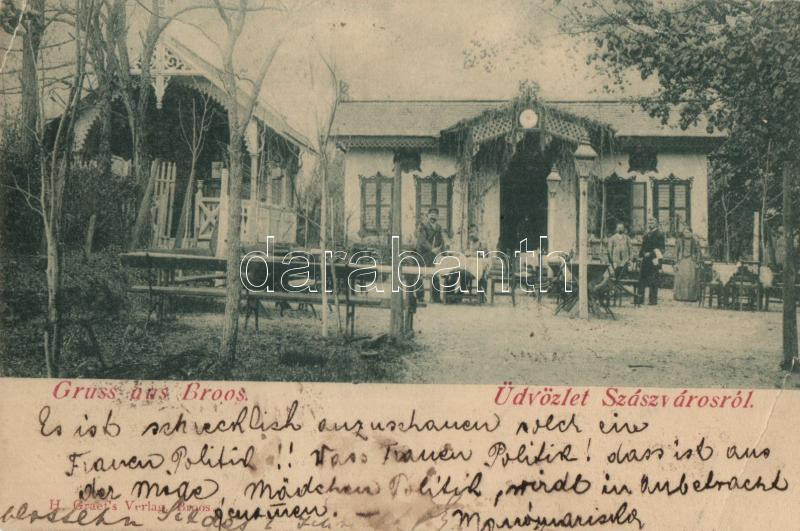 darabanth
Gruss aus Broos.
Üdvözlet Szászvárosról.
Es ist schrecklich anzuschauen solch ein
Frauen Politik !! Was Frauen Politik ! dass ist aus
der Mode Mädchen Politik, wirdt in Anbetracht
H. Graef's Verlag, Broos.
genommen.